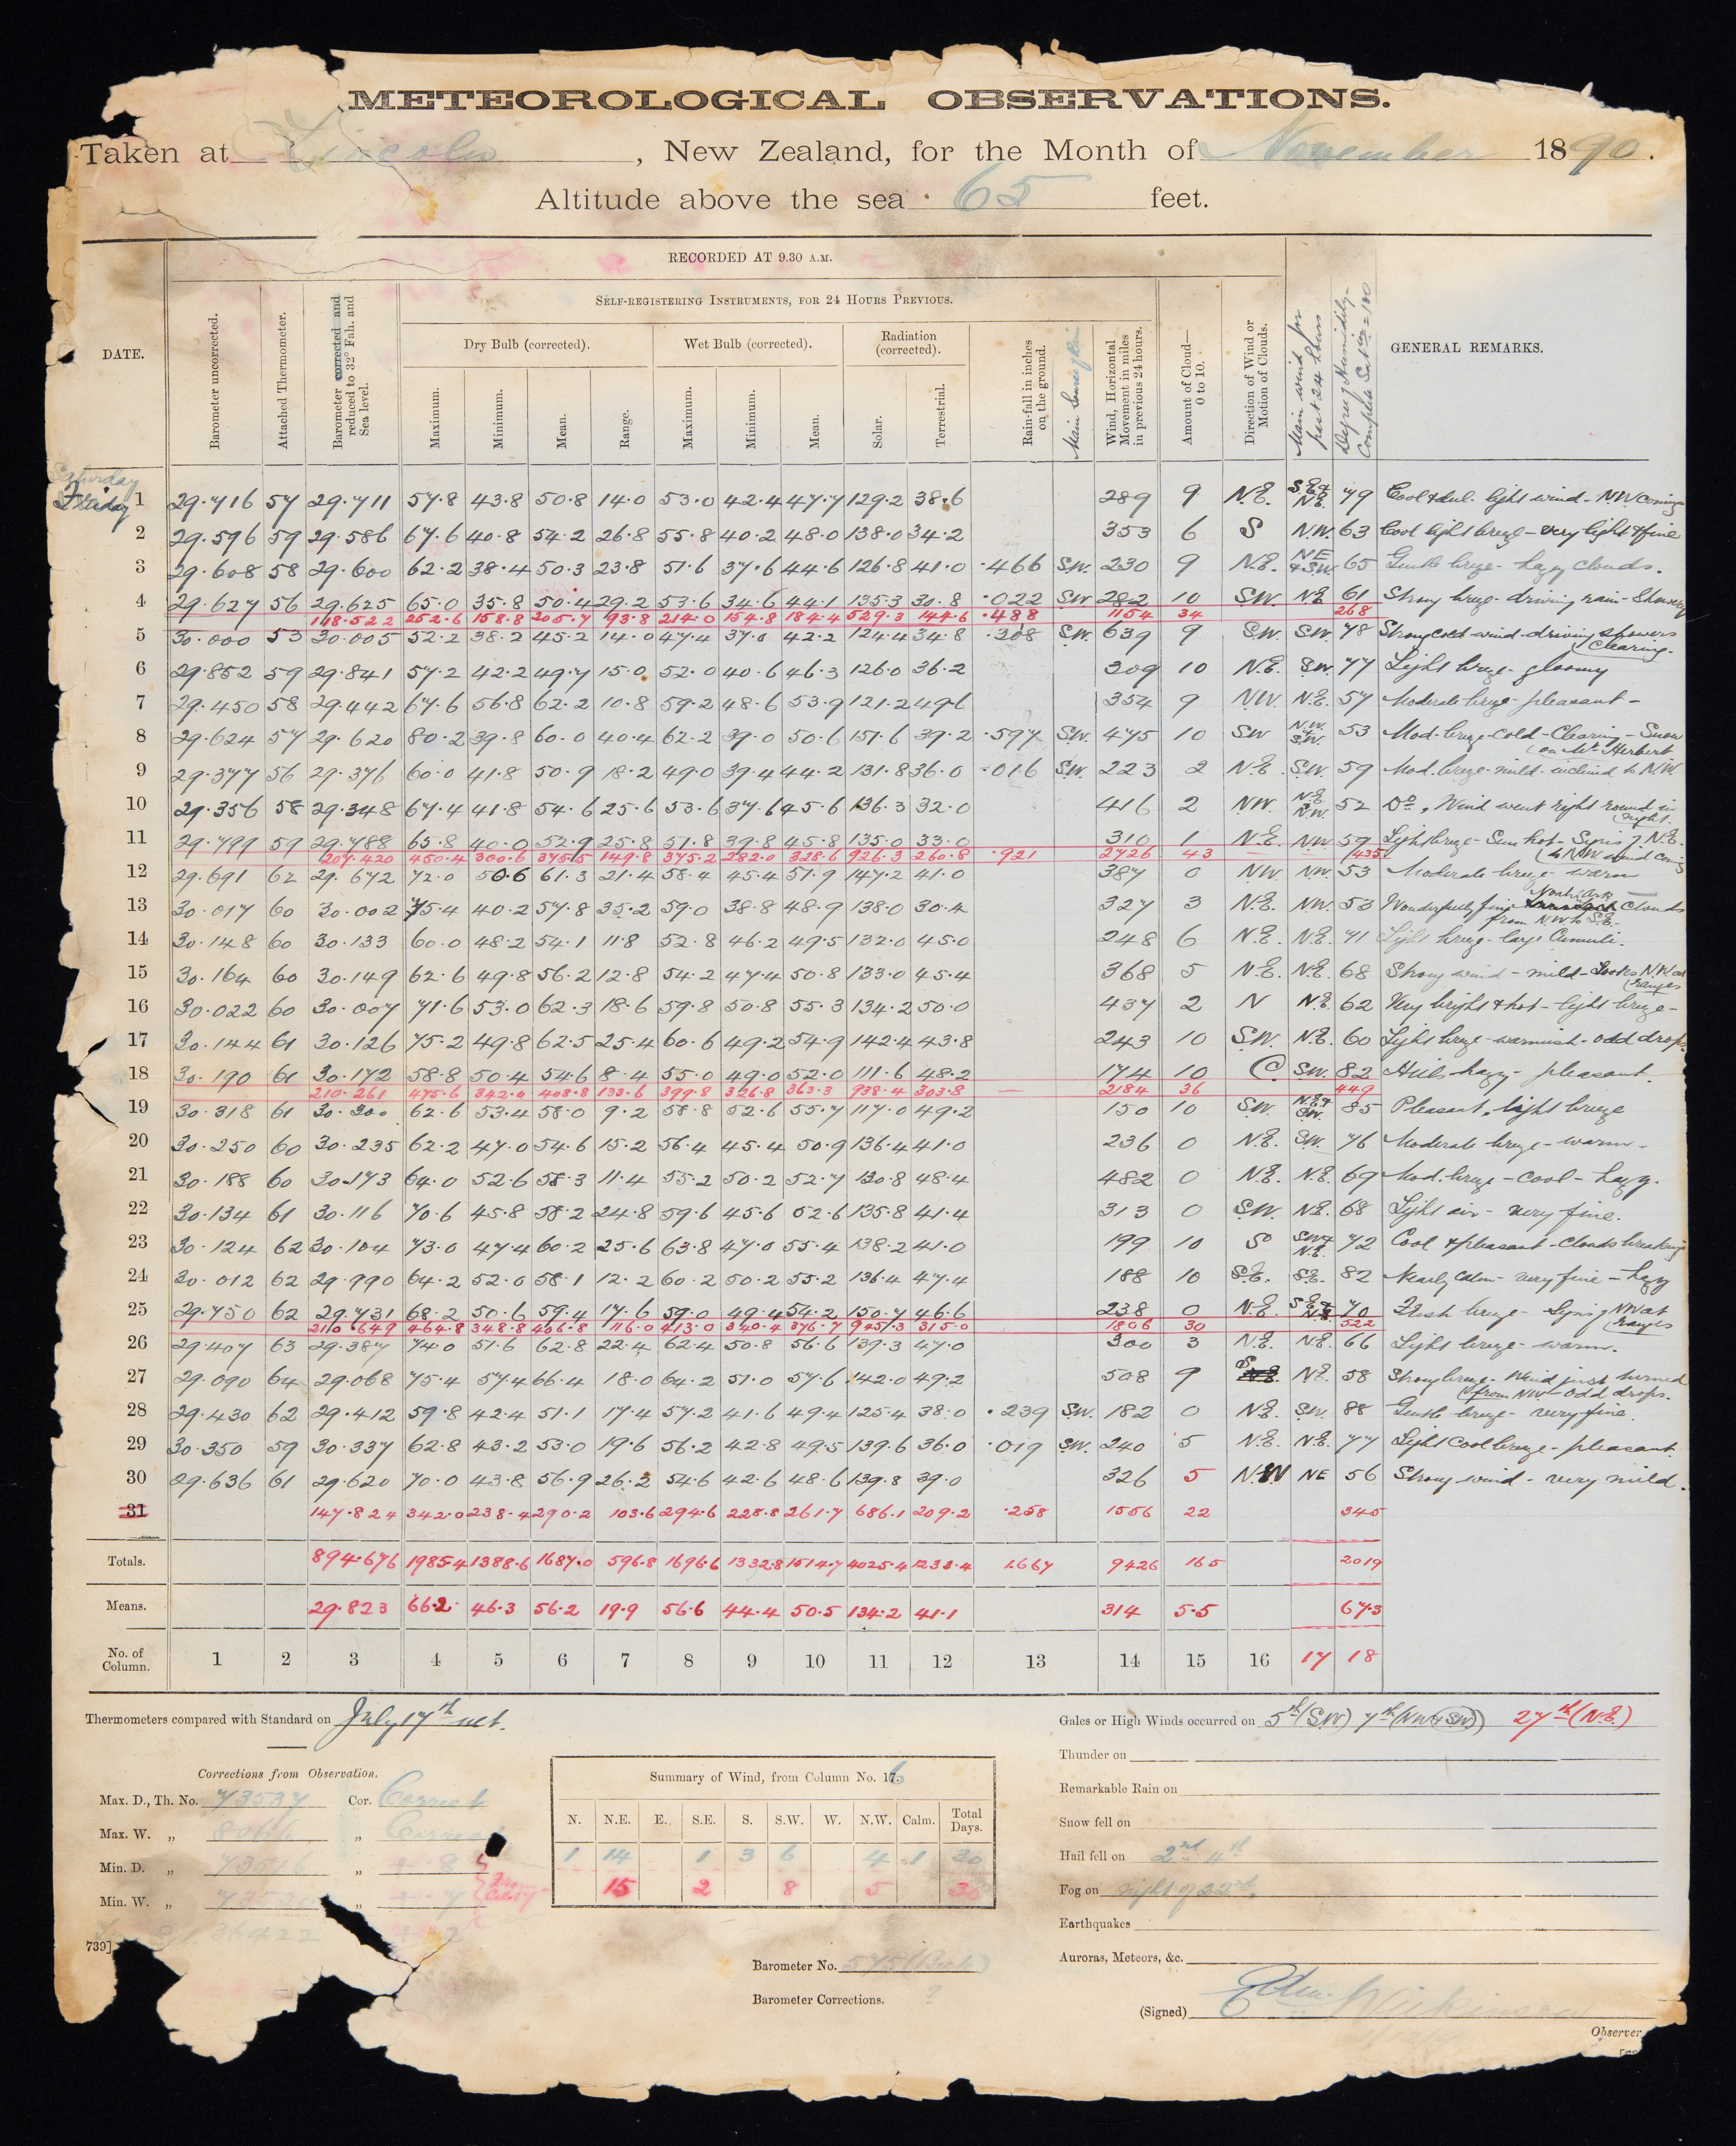 METEOROLOGICAL OBSERVATIONS.
Taken at Lincoln, New Zealand, for the Month of November 1890.
Altitude above the sea 65 feet.
RECORDED AT 9.30 A.M.
SELF-REGISTERING INSTRUMENTS, FOR 24 HOURS PREVIOUS.
DATE.
Barometer uncorrected.
Attached Thermometer.
Barometer corrected and reduced to 32° Fah. and Sea level.
Dry Bulb (corrected).
Maximum. Minimum. Mean. Range.
Wet Bulb (corrected).
Maximum. Minimum. Mean.
Radiation (corrected).
Solar. Terrestrial.
Rain-fall in inches on the ground.
Main Source of Rain
Wind, Horizontal Movement in miles in previous 24 hours.
Amount of Cloud— 0 to 10.
Direction of Wind or Motion of Clouds.
Main wind for past 24 hours
Degree of Humidity— Complete Satn = 100
GENERAL REMARKS.
Saturday
Friday 1 29.716 57 29.711 57.8 43.8 50.8 14.0 53.0 42.4 47.7 129.2 38.6 289 9 N.E. S.E.& N.E. 79 Cool & dul. light wind - N.W coming
2 29.596 59 29.586 67.6 40.8 54.2 26.8 55.8 40.2 48.0 138.0 34.2 353 6 S N.W. 63 Cool light breeze - very light & fine
3 29.608 58 29.600 62.2 38.4 50.3 23.8 51.6 37.6 44.6 126.8 41.0 .466 S.W. 230 9 N.E. NE & SW 65 Gentle breeze - hazy clouds.
4 29.627 56 29.625 65.0 35.8 50.4 29.2 53.6 34.6 44.1 135.3 30.8 .022 SW 282 10 S.W. N.E 61 Strong breeze - driving rain - Showery
118.522 252.6 158.8 205.7 93.8 214.0 154.8 184.4 529.3 144.6 .488 1154 34 268
5 30.000 53 30.005 52.2 38.2 45.2 14.0 47.4 37.0 42.2 124.4 34.8 .308 S.W. 639 9 S.W. S.W. 78 Strong cold wind - driving showers Clearing.
6 29.852 59 29.841 57.2 42.2 49.7 15.0 52.0 40.6 46.3 126.0 36.2 309 10 N.E. S.W. 77 Light breeze - gloomy
7 29.450 58 29.442 67.6 56.8 62.2 10.8 59.2 48.6 53.9 121.2 49.6 354 9 NW. N.E. 57 Moderate breeze - pleasant -
8 29.624 57 29.620 80.2 39.8 60.0 40.4 62.2 39.0 50.6 151.6 39.2 .597 S.W. 475 10 SW N.W. & S.W. 53 Mod. breeze - cold - Clearing - Snow on Mt Herbert
9 29.377 56 29.376 60.0 41.8 50.9 18.2 49.0 39.4 44.2 131.8 36.0 .016 S.W. 223 2 N.E S.W. 59 Mod. breeze - mild - inclined to N.W.
10 29.356 58 29.348 67.4 41.8 54.6 25.6 53.6 37.6 45.6 136.3 32.0 416 2 NW. N.E. & N.W. 52 Do, Wind went right round in night.
11 29.799 59 29.788 65.8 40.0 52.9 25.8 51.8 39.8 45.8 135.0 33.0 310 1 N.E. N.W. 59 Light breeze - Sun hot - Signs of N.E. to N.W wind coming
207.420 450.4 300.6 375.5 149.8 375.2 282.0 328.6 926.3 260.8 .921 2726 43 435
12 29.691 62 29.672 72.0 50.6 61.3 21.4 58.4 45.4 51.9 147.2 41.0 387 0 NW. NW. 53 Moderate breeze - warm
13 30.017 60 30.002 75.4 40.2 57.8 35.2 59.0 38.8 48.9 138.0 30.4 327 3 N.E. NW. 53 Wonderfully fine Noah's Ark Clouds from NW to S.E.
14 30.148 60 30.133 60.0 48.2 54.1 11.8 52.8 46.2 49.5 132.0 45.0 248 6 N.E. N.E. 71 Light breeze - large Cumuli.
15 30.164 60 30.149 62.6 49.8 56.2 12.8 54.2 47.4 50.8 133.0 45.4 368 5 N.E. N.E. 68 Strong wind - mild - Looks N.W at ranges
16 30.022 60 30.007 71.6 53.0 62.3 18.6 59.8 50.8 55.3 134.2 50.0 437 2 N N.E 62 Very bright & hot - light breeze -
17 30.144 61 30.126 75.2 49.8 62.5 25.4 60.6 49.2 54.9 142.4 43.8 243 10 S.W. N.E. 60 Light breeze - warmish - odd drops.
18 30.190 61 30.172 58.8 50.4 54.6 8.4 55.0 49.0 52.0 111.6 48.2 174 10 C S.W. 82 Hills hazy - pleasant.
210.261 475.6 342.0 408.8 133.6 399.8 326.8 363.3 938.4 303.8 — 2184 36 449
19 30.318 61 30.300 62.6 53.4 58.0 9.2 58.8 52.6 55.7 117.0 49.2 150 10 S.W. N.E.& S.W. 85 Pleasant, light breeze
20 30.250 60 30.235 62.2 47.0 54.6 15.2 56.4 45.4 50.9 136.4 41.0 236 0 N.E. S.W. 76 Moderate breeze - warm -
21 30.188 60 30.173 64.0 52.6 58.3 11.4 55.2 50.2 52.7 130.8 48.4 482 0 N.E. N.E. 69 Mod. breeze - cool - hazy.
22 30.134 61 30.116 70.6 45.8 58.2 24.8 59.6 45.6 52.6 135.8 41.4 313 0 S.W. N.E. 68 Light air - very fine.
23 30.124 62 30.104 73.0 47.4 60.2 25.6 63.8 47.0 55.4 138.2 41.0 199 10 S SW& N.E. 72 Cool & pleasant - clouds breaking
24 30.012 62 29.990 64.2 52.0 58.1 12.2 60.2 50.2 55.2 136.4 47.4 188 10 S.E. S.E. 82 Nearly calm - very fine - hazy
25 29.750 62 29.731 68.2 50.6 59.4 17.6 59.0 49.4 54.2 150.7 46.6 238 0 N.E. S.E & N.E 70 Fresh breeze - Signs of NW at ranges
210.649 464.8 348.8 406.8 116.0 413.0 340.4 376.7 945.3 315.0 1806 30 522
26 29.407 63 29.387 74.0 51.6 62.8 22.4 62.4 50.8 56.6 139.3 47.0 300 3 N.E. N.E. 66 Light breeze - warm.
27 29.090 64 29.068 75.4 57.4 66.4 18.0 64.2 51.0 57.6 142.0 49.2 508 9 S N.E. 58 Strong breeze - Wind just turned from NW - odd drops.
28 29.430 62 29.412 59.8 42.4 51.1 17.4 57.2 41.6 49.4 125.4 38.0 .239 S.W. 182 0 N.E. S.W. 88 Gentle breeze - very fine.
29 30.350 59 30.337 62.8 43.2 53.0 19.6 56.2 42.8 49.5 139.6 36.0 .019 S.W. 240 5 N.E. N.E. 77 Light cool breeze - pleasant
30 29.636 61 29.620 70.0 43.8 56.9 26.2 54.6 42.6 48.6 139.8 39.0 326 5 N.W NE 56 Strong wind - very mild.
31 147.824 342.0 238.4 290.2 103.6 294.6 228.8 261.7 686.1 209.2 .258 1556 22 345
Totals. 894.676 1985.4 1388.6 1687.0 596.8 1696.6 1332.8 1514.7 4025.4 1233.4 1.667 9426 165 2019
Means. 29.823 66.2 46.3 56.2 19.9 56.6 44.4 50.5 134.2 41.1 314 5.5 67.3
No. of Column. 1 2 3 4 5 6 7 8 9 10 11 12 13 14 15 16 17 18
Thermometers compared with Standard on July 17th ult.
Corrections from Observation.
Max. D., Th. No. 73537 Cor. Correct
Max. W. „ „ Correct
Min. D. „ 73516 „ + .8
Min. W. „ „ + .7
36422
739]
Summary of Wind, from Column No. 17. 6
N. N.E. E. S.E. S. S.W. W. N.W. Calm. Total Days.
1 14 1 3 6 4 1 30
15 2 8 5 30
Barometer No. 575
Barometer Corrections. ?
Gales or High Winds occurred on 5th (S.W) 7th (NW & SW) 27th (N.E.)
Thunder on
Remarkable Rain on
Snow fell on
Hail fell on 2nd 4th
Fog on night of 22nd.
Earthquakes
Auroras, Meteors, &c.
(Signed) Edm. Wilkinson
Observer